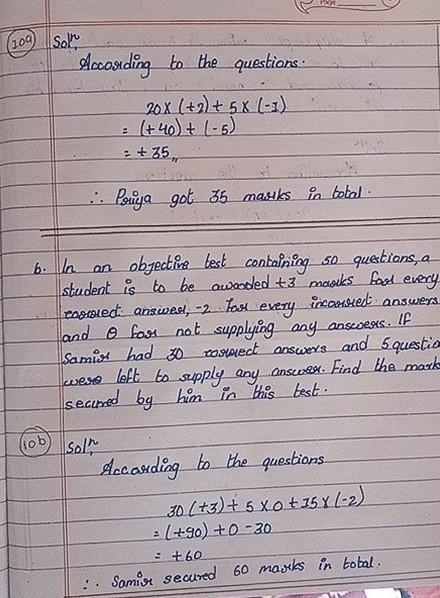 Page
10a Solⁿ,
According to the questions.
20 × (+2) + 5 × (-1)
= (+40) + (-5)
= + 35,,
∴ Priya got 35 marks in total.
b. In an objective test containing 50 questions, a
student is to be awarded +3 marks for every
correct answer, -2 for every incorrect answers
and 0 for not supplying any answers. If
Samir had 30 correct answers and 5 questio
were left to supply any answer. Find the mark
secured by him in this test.
10b Solⁿ,
According to the questions
30 (+3) + 5 × 0 + 15 × (-2)
= (+90) + 0 - 30
= +60
∴ Samir secured 60 marks in total.